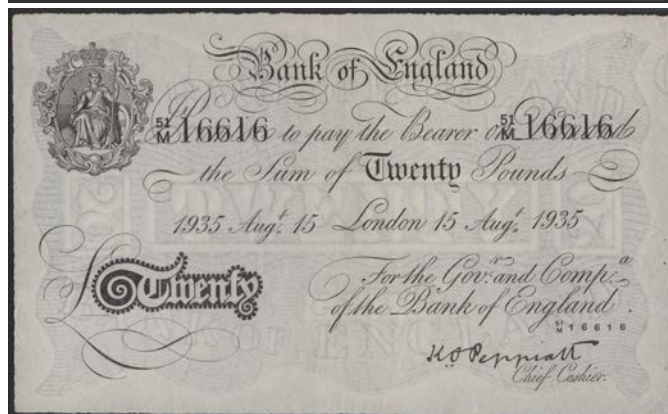 Bank of England
51/M 16616 to pay the Bearer on Demand 51/M 16616
the Sum of Twenty Pounds
1935 Augt. 15 London 15 Augt. 1935
Twenty
For the Govr. and Compa.
of the Bank of England.
51/M 16616
K O Peppiatt
Chief Cashier.